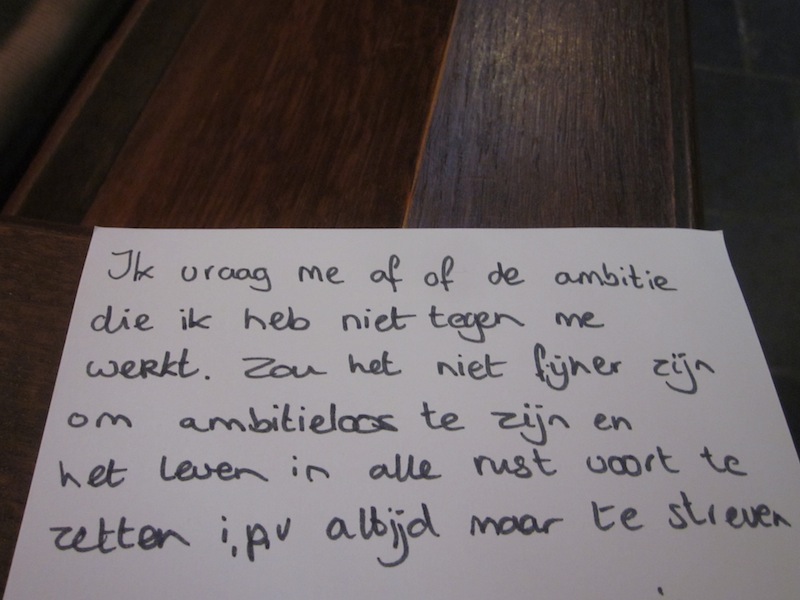 Ik vraag me af of de ambitie
die ik heb niet tegen me
werkt. Zou het niet fijner zijn
om ambitieloos te zijn en
het leven in alle rust voort te
zetten i,p,v altijd maar te streven